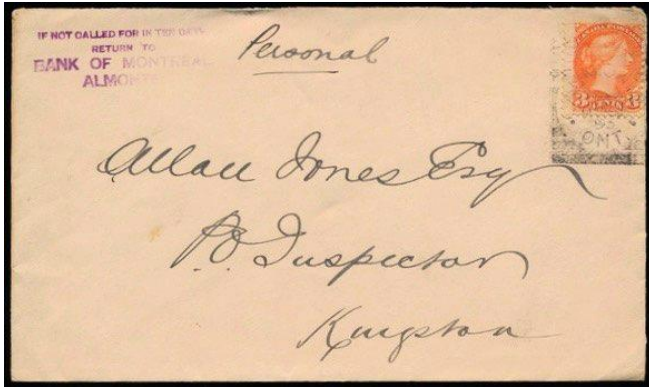 IF NOT CALLED FOR IN TEN DAYS
RETURN TO
BANK OF MONTREAL
ALMONTE
Personal
3 3
95
ONT
Allan Jones Esq
P.O. Inspector
Kingston